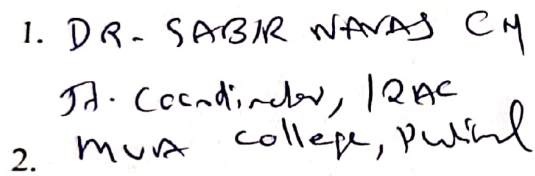 1. DR. SABIR NAVAS CM
Jt. Coordinator, IQAC
2. MUA College, Pulikal